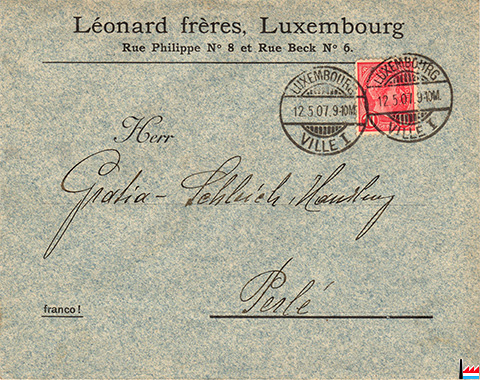 Léonard frères, Luxembourg
Rue Philippe Nº 8 et Rue Beck Nº 6.
LUXEMBOURG
12.5.07.9-10M
VILLE I
LUXEMBOURG
12.5.07.9-10M
VILLE I
Herr
Gratia-Schleich, Handlung
Perlé
franco!